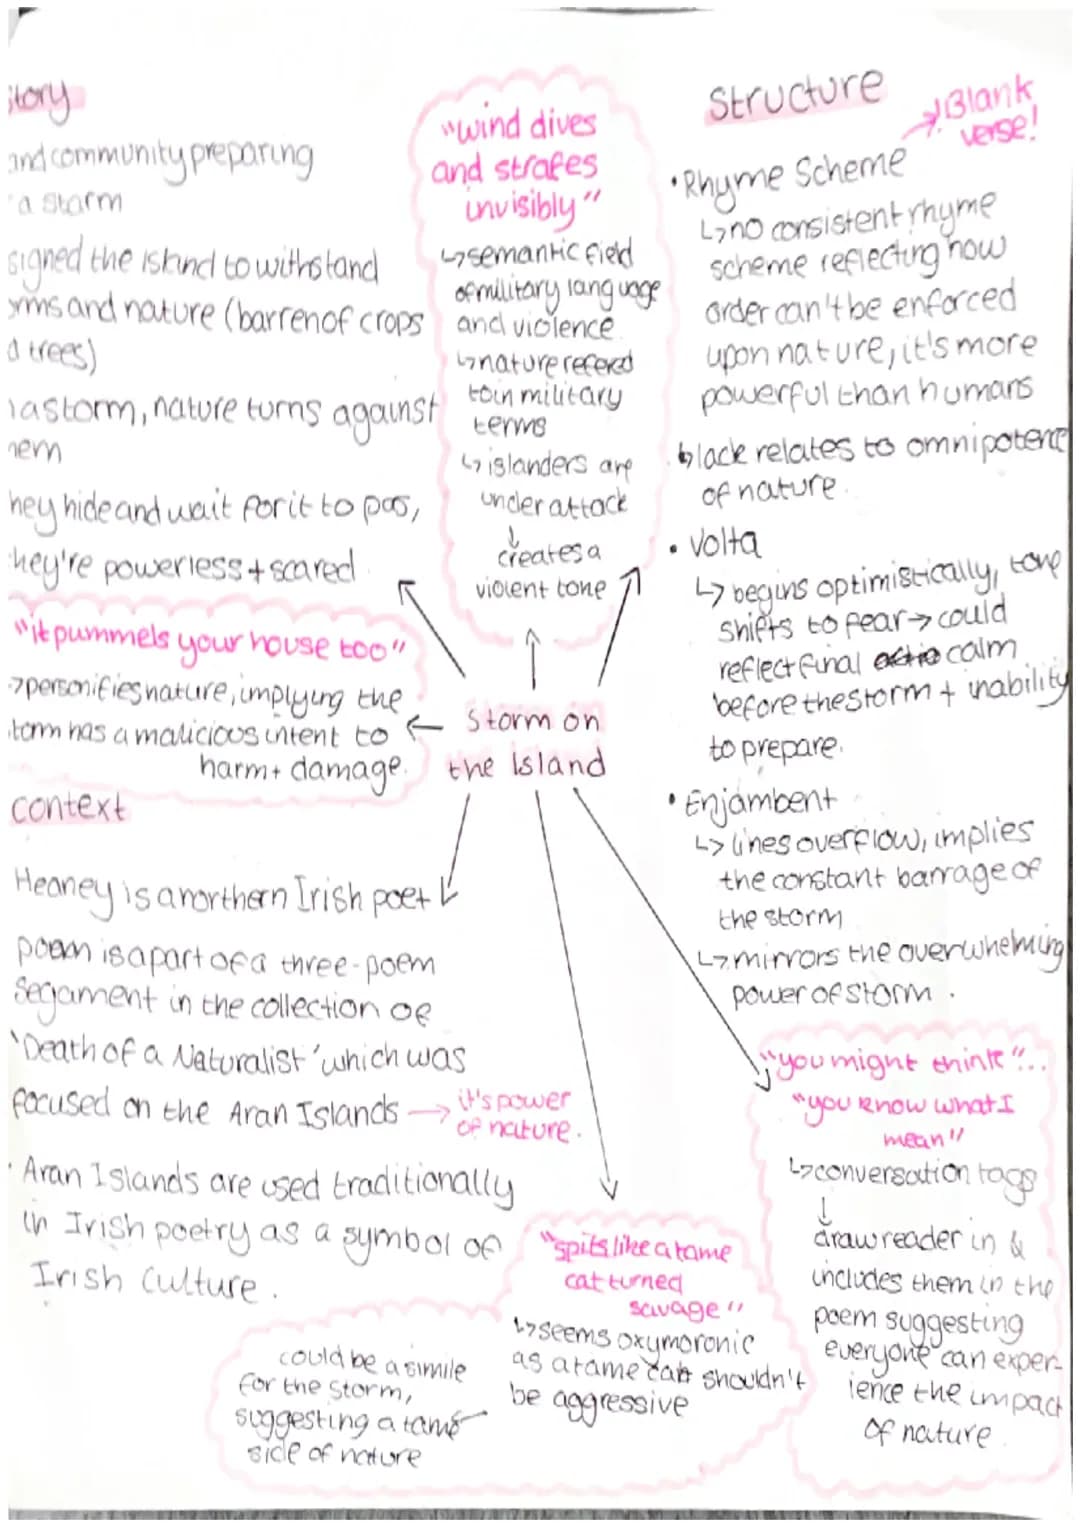 story
and community preparing
a storm
signed the island to withstand
orms and nature (barren of crops
d trees)
a storm, nature turns against
hem
hey hide and wait for it to pass,
they're powerless + scared
"it pummels your house too"
→ personifies nature, implying the
storm has a malicious intent to
harm + damage.
context
Heaney is a northern Irish poet
poem is a part of a three-poem
segament in the collection of
'Death of a Naturalist' which was
focused on the Aran Islands → it's power
of nature.
· Aran Islands are used traditionally
in Irish poetry as a symbol of
Irish culture.
"wind dives
and strafes
invisibly"
↳ semantic field
of military language
and violence
↳ nature refered
to in military
terms
↳ islanders are
under attack
↓
creates a
violent tone
Storm on
the Island
Structure
→ Blank
verse!
• Rhyme Scheme
↳ no consistent rhyme
scheme reflecting how
order can't be enforced
upon nature, it's more
powerful than humans
↳ lack relates to omnipotence
of nature.
• Volta
↳ begins optimistically, tone
shifts to fear → could
reflect final calm
before the storm + inability
to prepare.
• Enjambent
↳ lines overflow, implies
the constant barrage of
the storm
↳ mirrors the overwhelming
power of storm.
"you might think"...
"you know what I
mean"
↳ conversation tags
↓
draw reader in &
includes them in the
poem suggesting
everyone can exper-
ience the impact
of nature
"spits like a tame
cat turned
savage"
↳ seems oxymoronic
as a tame cat shouldn't
be aggressive
could be a simile
for the storm,
suggesting a tame
side of nature